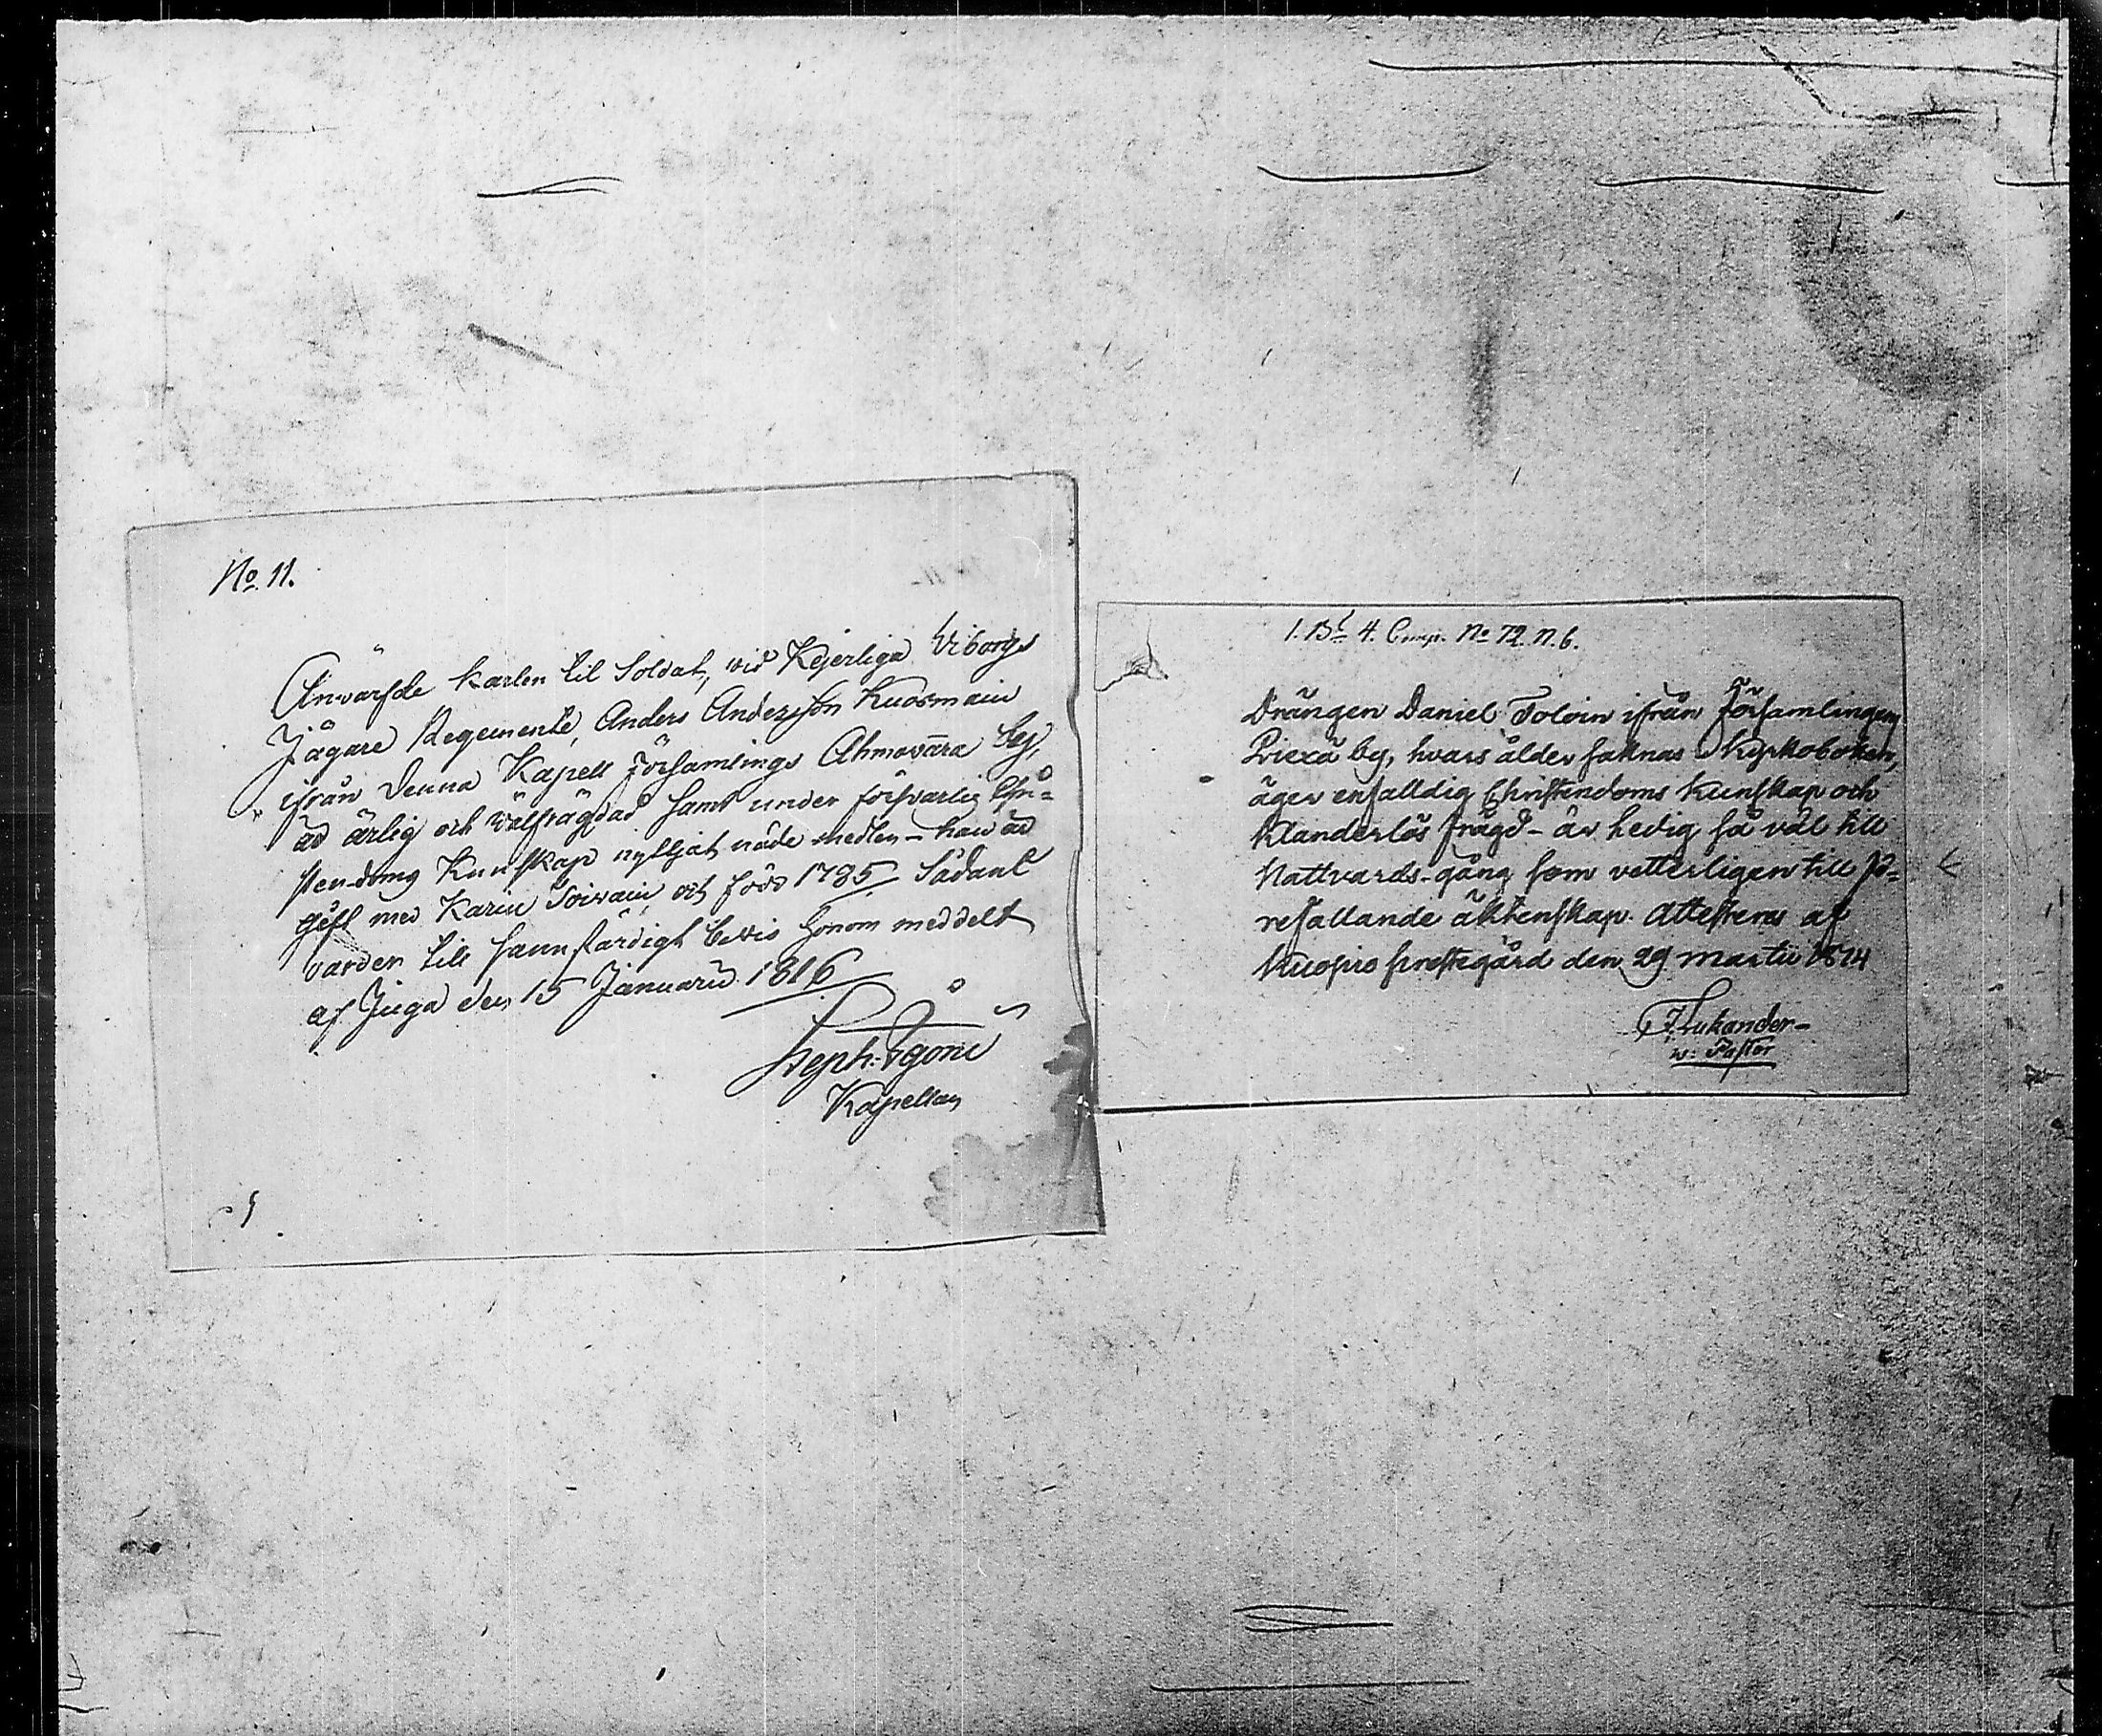 No 11.
Anwärfde karlen til Soldat, vid Kejserliga Viborgs
Jägare Regemente, Anders Andersson Kuosmain
ifrån denna Kapell Församlings Ahmovara by,
är ärlig och wälfrägdad samt under försvarlig Chri=
stendoms Kunskap nyttjat nådemedlen - han är
gift med Karin Soivain och född 1785 Sådant
varder till sannfärdigt bevis honom meddelt
af Juga den 15 Januarii 1816
Steph:
Kapellan
1. Bt 4. Comp. No 72. N. 6.
Drängen Daniel Toloin ifrån Församlingens
by, hvars ålder saknas i Kyrkoboken,
äger enfalldig Christendoms Kunskap och
Klanderlös frägd - är ledig så väl till
Nattvards-gång som vetterligen till fö=
refallande äktenskap. Attesteras af
Kuopio prestegård den 29 Martii 1814
Lukander -
v: Pastor